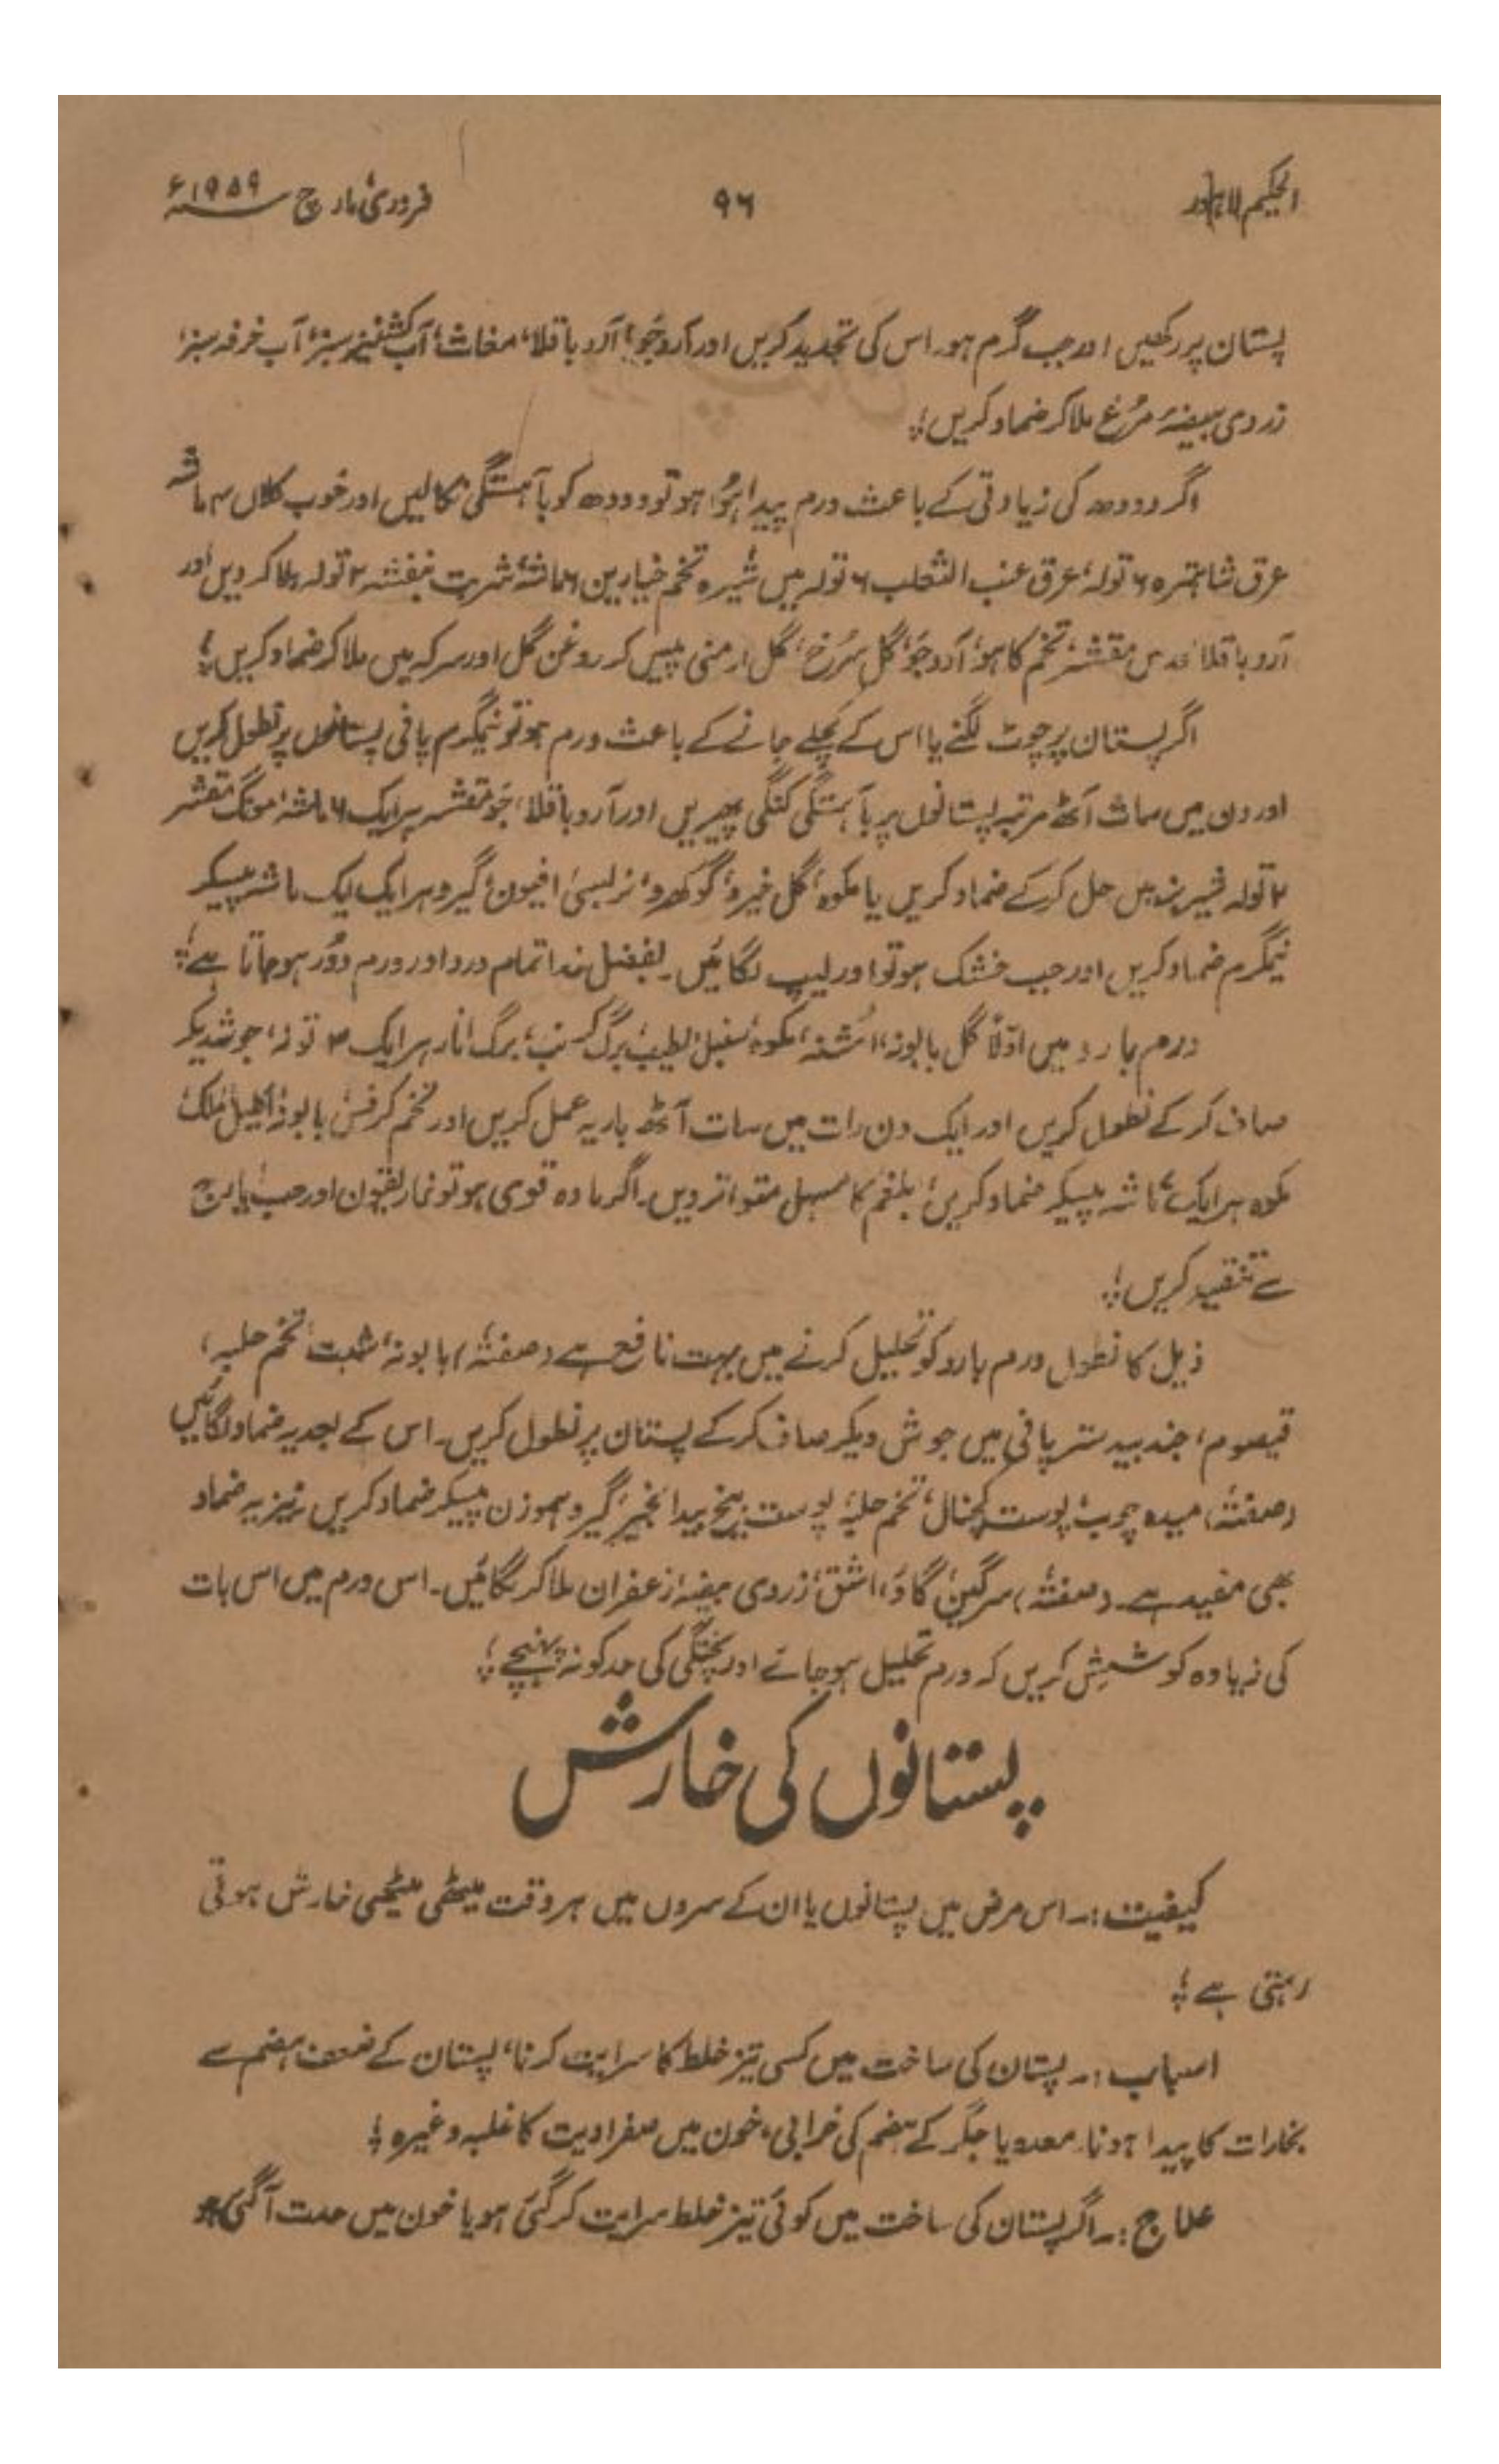 الحکیم لاہور ۹۶ فروری، مارچ سنہ ۱۹۵۹ء
پستان پر رکھیں اور جب گرم ہو۔ اس کی تجدید کریں اور آرد جَو، آرد باقلا، مغاث، آب کشنیز سبز، آب خرفہ سبز،
زردی بیضۂ مرُغ ملا کر ضماد کریں؛
اگر دودھ کی زیادتی کے باعث ورم پیدا ہُوا ہو تو دودھ کو بآہستگی نکالیں اور خوب کلاں ۴ ماشہ
عرق شاہترہ ۶ تولہ، عرق عنب الثعلب ۶ تولہ میں شیرہ تخم خیارین ۶ ماشہ، شربت بنفشہ ۲ تولہ ملا کر دیں اور
آرد باقلا، عدس مقشر، تخم کاہو، آرد جَو، گل سُرخ، گل ارمنی پیس کر روغن گل اور سرکہ میں ملا کر ضماد کریں؛
اگر پستان پر چوٹ لگنے یا اس کے کچلے جانے کے باعث ورم ہو تو نیمگرم پانی پستانوں پر نطول کریں
اور دن میں سات آٹھ مرتبہ پستانوں پر بآہستگی کنگی پھیریں اور آرد باقلا، جَو مقشر ہر ایک ۶ ماشہ، مونگ مقشر
۲ تولہ میں حل کر کے ضماد کریں یا مکوہ، گل خیرو، گوکھرو، نربسی، افیون، گیرو ہر ایک ایک ماشہ پیسکر
نیمگرم ضماد کریں اور جب خشک ہو تو اور لیپ لگائیں۔ بفضل خدا تمام درد اور ورم دُور ہو جاتا ہے؛
ورم بارد میں اوّلاً گل بابونہ، اُشنہ، مکوہ، سنبل الطیب، برگ کرنب، برگ انار ہر ایک ۳ تولہ، جوشدیکر
صاف کر کے نطول کریں اور ایک دن رات میں سات آٹھ بار یہ عمل کریں اور تخم کرفس، بابونہ، اکلیل الملک،
مکوہ ہر ایک ماشہ پیسکر ضماد کریں، بلغم کا مسہل متواتر دیں۔ اگر مادہ قوی ہو تو غاریقون اور حب ایارج
سے تنقیہ کریں؛
ذیل کا نطول ورم بارد کو تحلیل کرنے میں بہت نافع ہے (صفتہٗ) بابونہ، شبت، تخم حلبہ،
قیصوم، جند بیدستر پانی میں جوش دیکر صاف کر کے پستان پر نطول کریں۔ اس کے بعد یہ ضماد لگائیں
(صفتہٗ) میدہ چوب، پوست کچنال، تخم حلبہ، پوست بیخ بیدانجیر، گیرو ہموزن پیسکر ضماد کریں نیز یہ ضماد
بھی مفید ہے۔ (صفتہٗ) سرگین گاؤ، اشق، زردی بیضہ، زعفران ملا کر لگائیں۔ اس ورم میں اس بات
کی زیادہ کوشش کریں کہ ورم تحلیل ہو جائے اور پختگی کی حد کو نہ پہنچے؛
پستانوں کی خارش
کیفیت:۔ اس مرض میں پستانوں یا ان کے سروں میں ہر وقت میٹھی میٹھی خارش ہوتی
رہتی ہے؛
اسباب:۔ پستان کی ساخت میں کسی تیز خلط کا سرایت کرنا، پستان کے ضعف ہضم سے
بخارات کا پیدا ہونا۔ معدہ یا جگر کے ہضم کی خرابی، خون میں صفراویت کا غلبہ وغیرہ؛
علاج:۔ اگر پستان کی ساخت میں کوئی تیز خلط سرایت کر گئی ہو یا خون میں حدت آگئی ہو